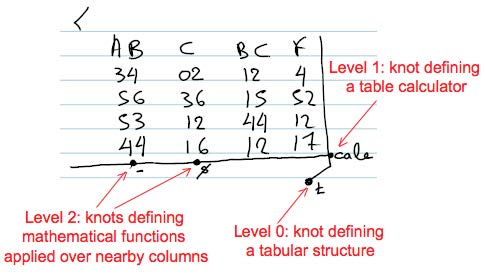 AB C BC F
34 02 12 4
56 36 15 52
53 12 44 12
44 16 12 17
calc
t
Level 1: knot defining
a table calculator
Level 2: knots defining
mathematical functions
applied over nearby columns
Level 0: knot defining
a tabular structure